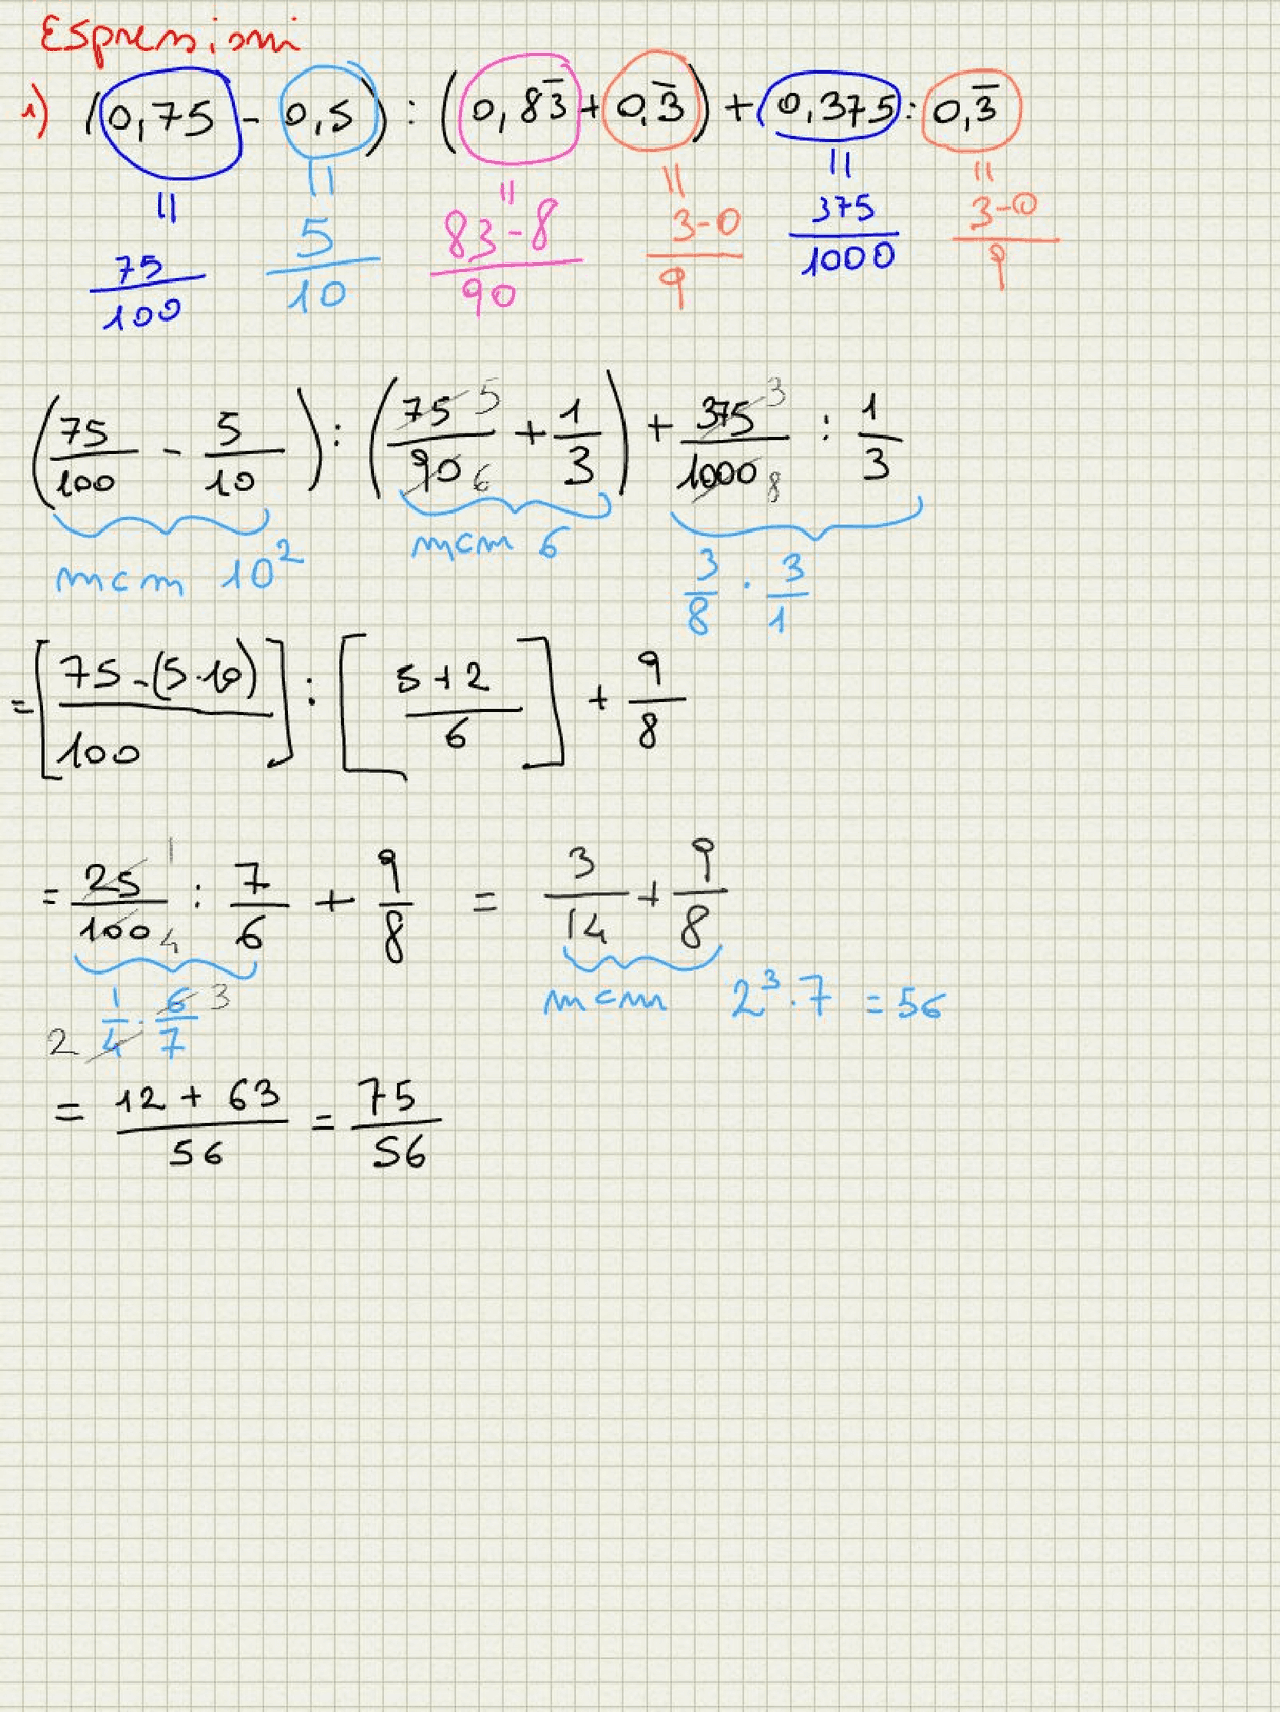 Espressioni
1) (0,75 - 0,5) : (0,83̅ + 0,3̅) + (0,375 : 0,3̅
= = = = = =
75/100 5/10 83-8/90 3-0/9 375/1000 3-0/9
(75/100 - 5/10) : (75/90 5/6 + 1/3) + 375/1000 3/8 : 1/3
mcm 10² mcm 6 3/8 · 3/1
= [75-(5·10)/100] : [5+2/6] + 9/8
= 25/100 1/4 : 7/6 + 9/8 = 3/14 + 9/8
2 1/4 · 6/7 3 mcm 2³·7 = 56
= 12 + 63/56 = 75/56